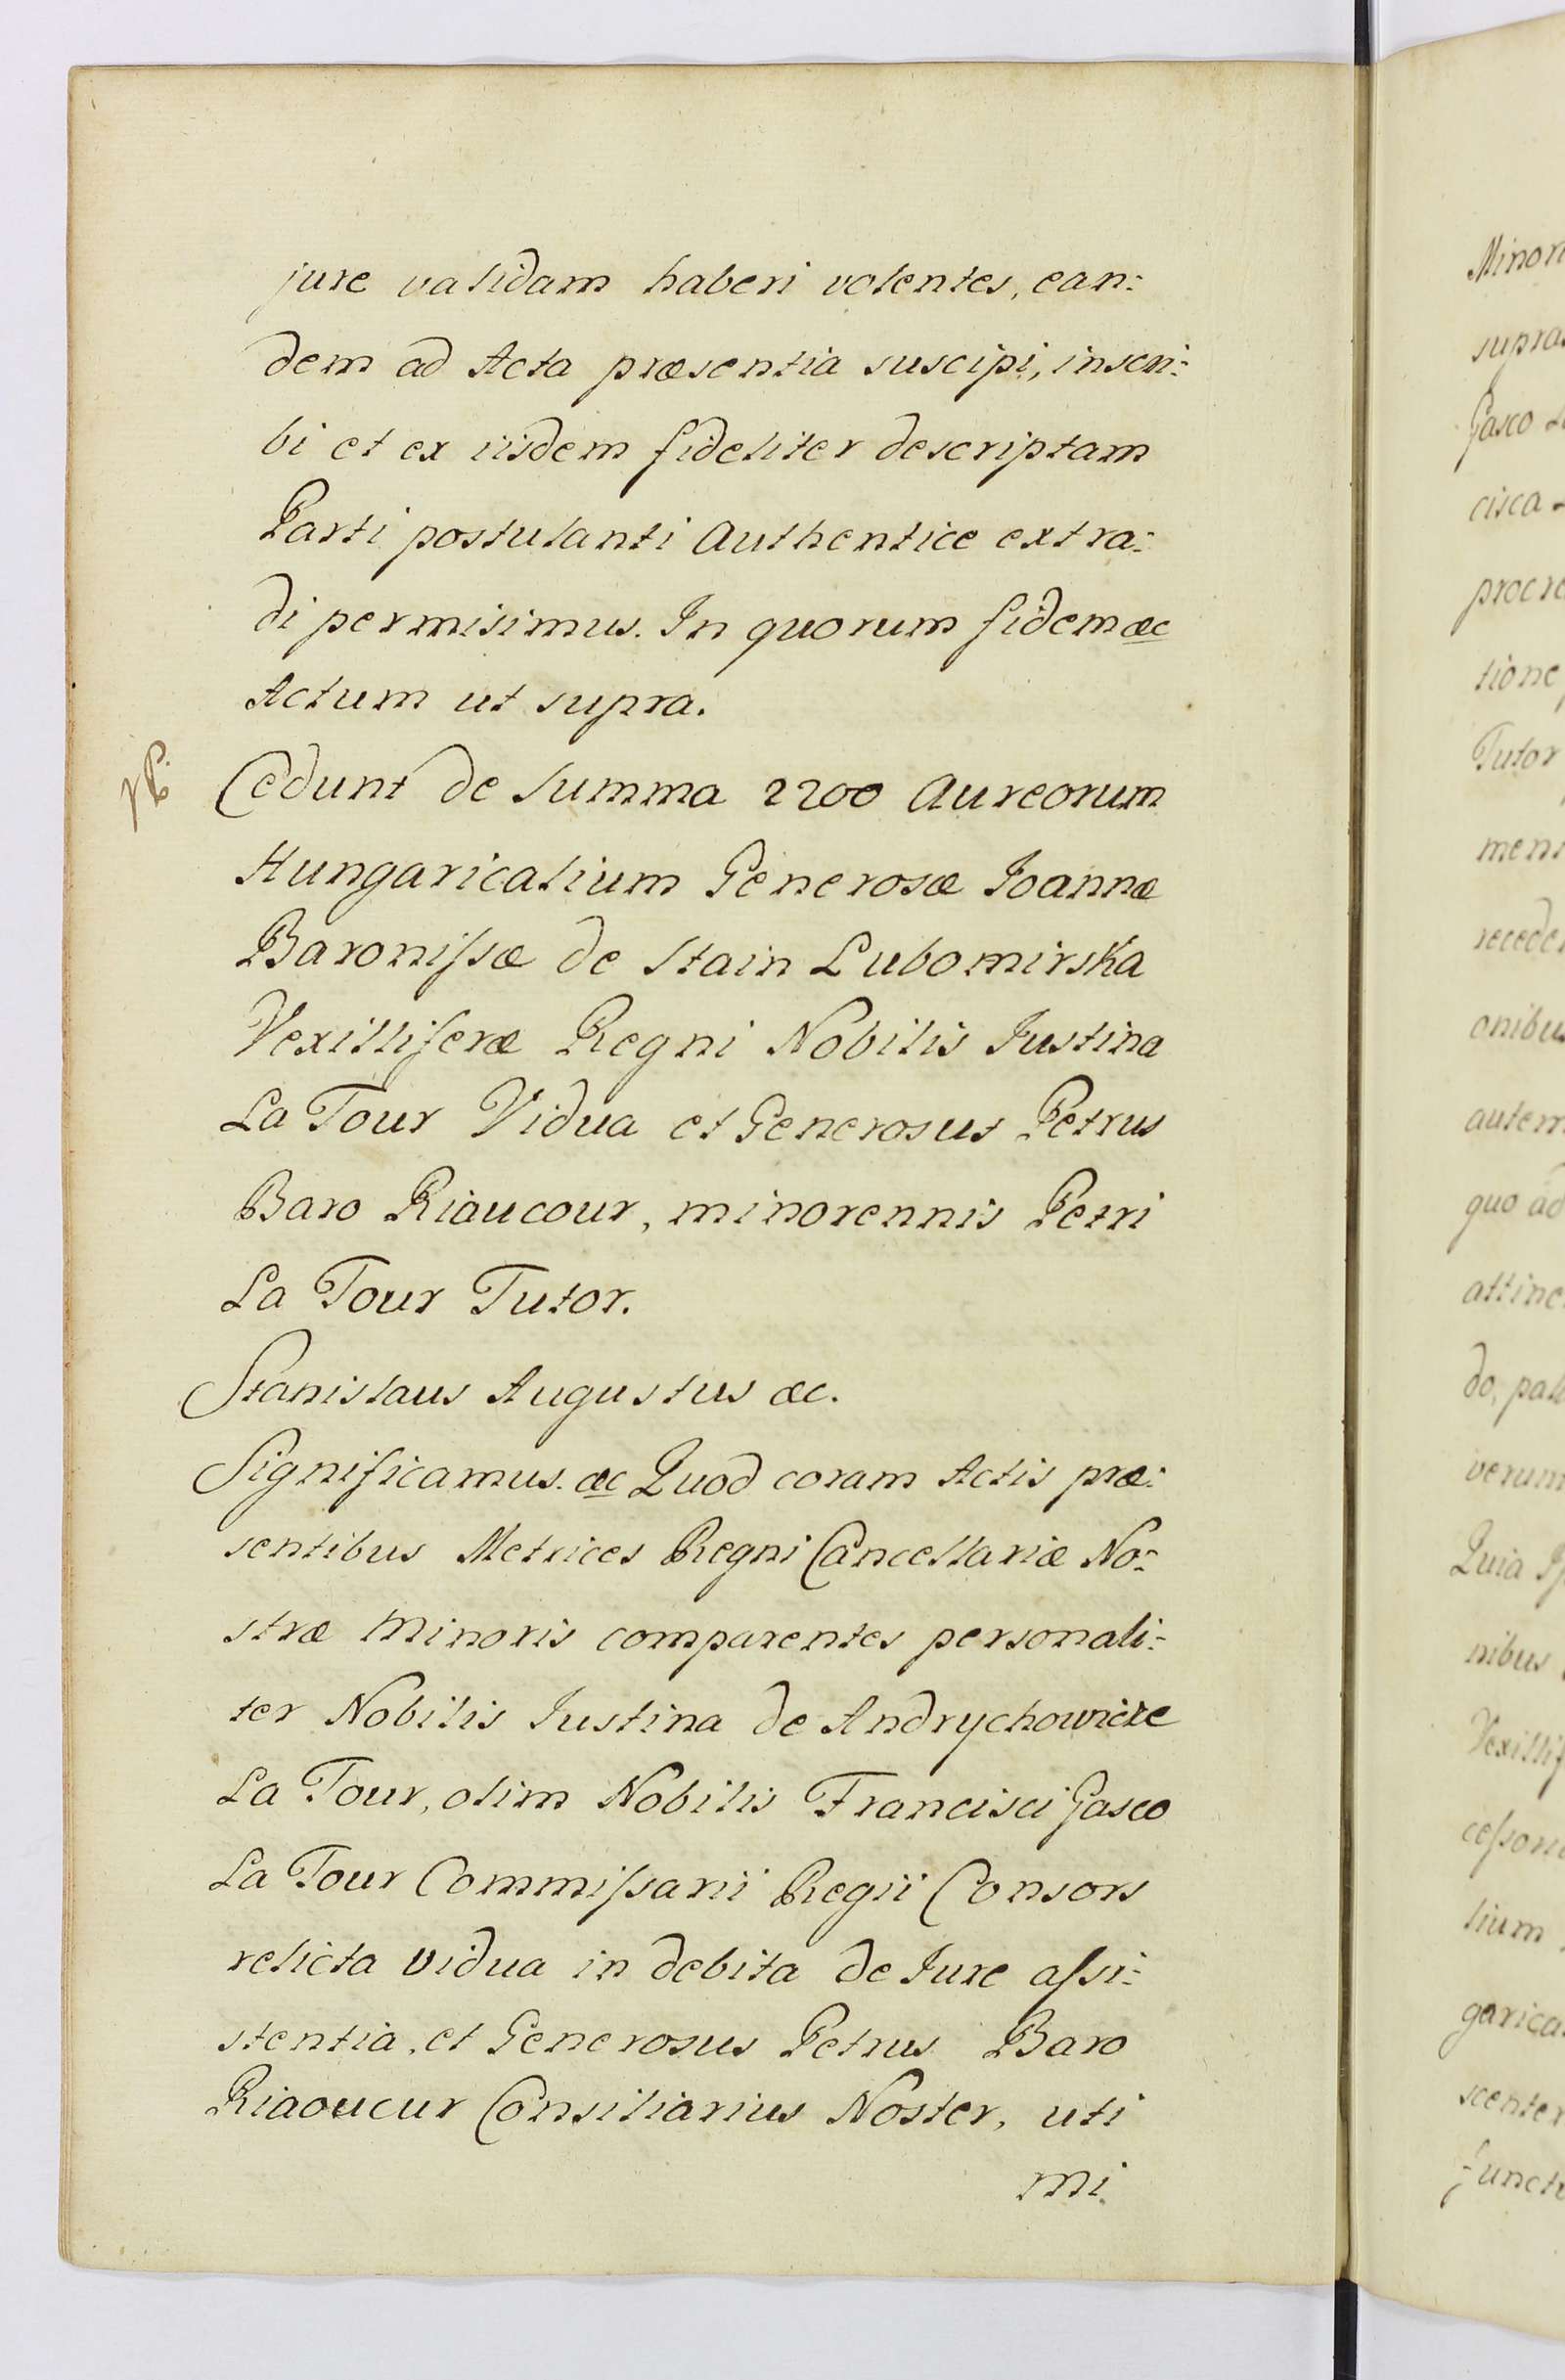 jure validam haberi volentes, ean:
dem ad Acta præsentia suscipi, inscri:
bi et ex iisdem fideliter descriptam
Parti postulanti Authentice extra:
di permisimus. In quorum fidem æc
Actum ut supra.
Cedunt de Summa 2200 Aureorum
Hungaricalium Generosæ Joannæ
Baronißæ de Stain Lubomirska
Vexilliferæ Regni Nobilis Justina
La Tour Vidua et Generosus Petrus
Baro Riaucour, minorennis Petri
La Tour Tutor.
Stanislaus Augustus æc.
Significamus. æc Quod coram Actis præ:
sentibus Metrices Regni Cancellariæ No:
stræ Minoris comparentes personali:
ter Nobilis Justina de Andrychowicze
La Tour, olim Nobilis Francisci Gasco
La Tour Commißarii Regii Consors
relicta vidua in debita de Jure aßi:
stentia, et Generosus Petrus Baro
Riaoucur Consiliarius Noster, uti
mi
Minor
supra
Gasco
cisca
procre
tione
Tutor
men
recede
onibus
autem
quo ad
attine
do, pal
verum
Quia
nibus
Vexillif
ceßon
lium
garica
scenter
functi